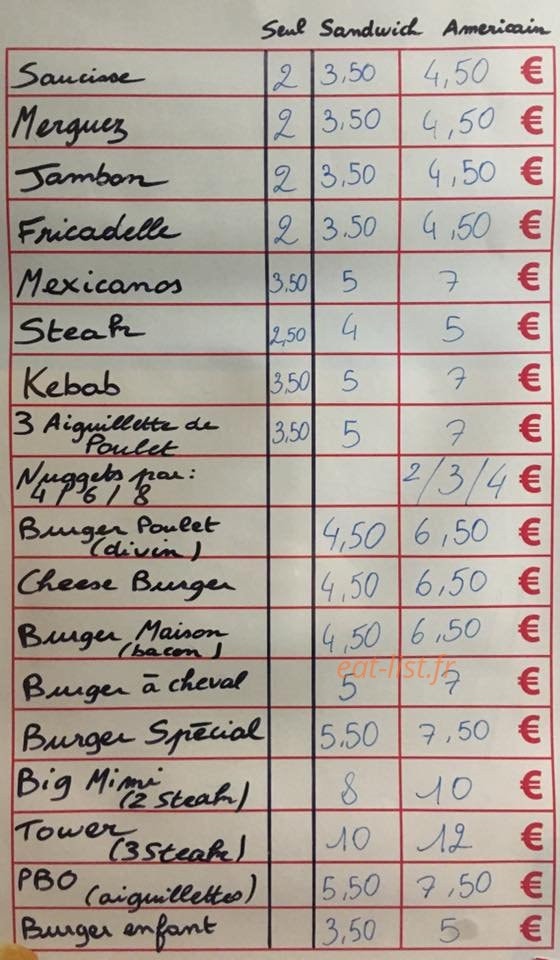 Seul Sandwich Americain
Saucisse 2 3,50 4,50 €
Merguez 2 3,50 4,50 €
Jambon 2 3,50 4,50 €
Fricadelle 2 3.50 4,50 €
Mexicanos 3,50 5 7 €
Steak 2,50 4 5 €
Kebab 3,50 5 7 €
3 Aiguillette de
Poulet 3,50 5 7 €
Nuggets par:
4 / 6 / 8 2/3/4 €
Burger Poulet
(divin) 4,50 6,50 €
Cheese Burger 4,50 6,50 €
Burger Maison
(bacon) 4,50 6,50 €
eat-list.fr
Burger à cheval 5 7 €
Burger Spécial 5,50 7,50 €
Big Mimi
(2 Steak) 8 10 €
Tower
(3 Steak) 10 12 €
PBO
(aiguillettes) 5,50 7,50 €
Burger enfant 3,50 5 €